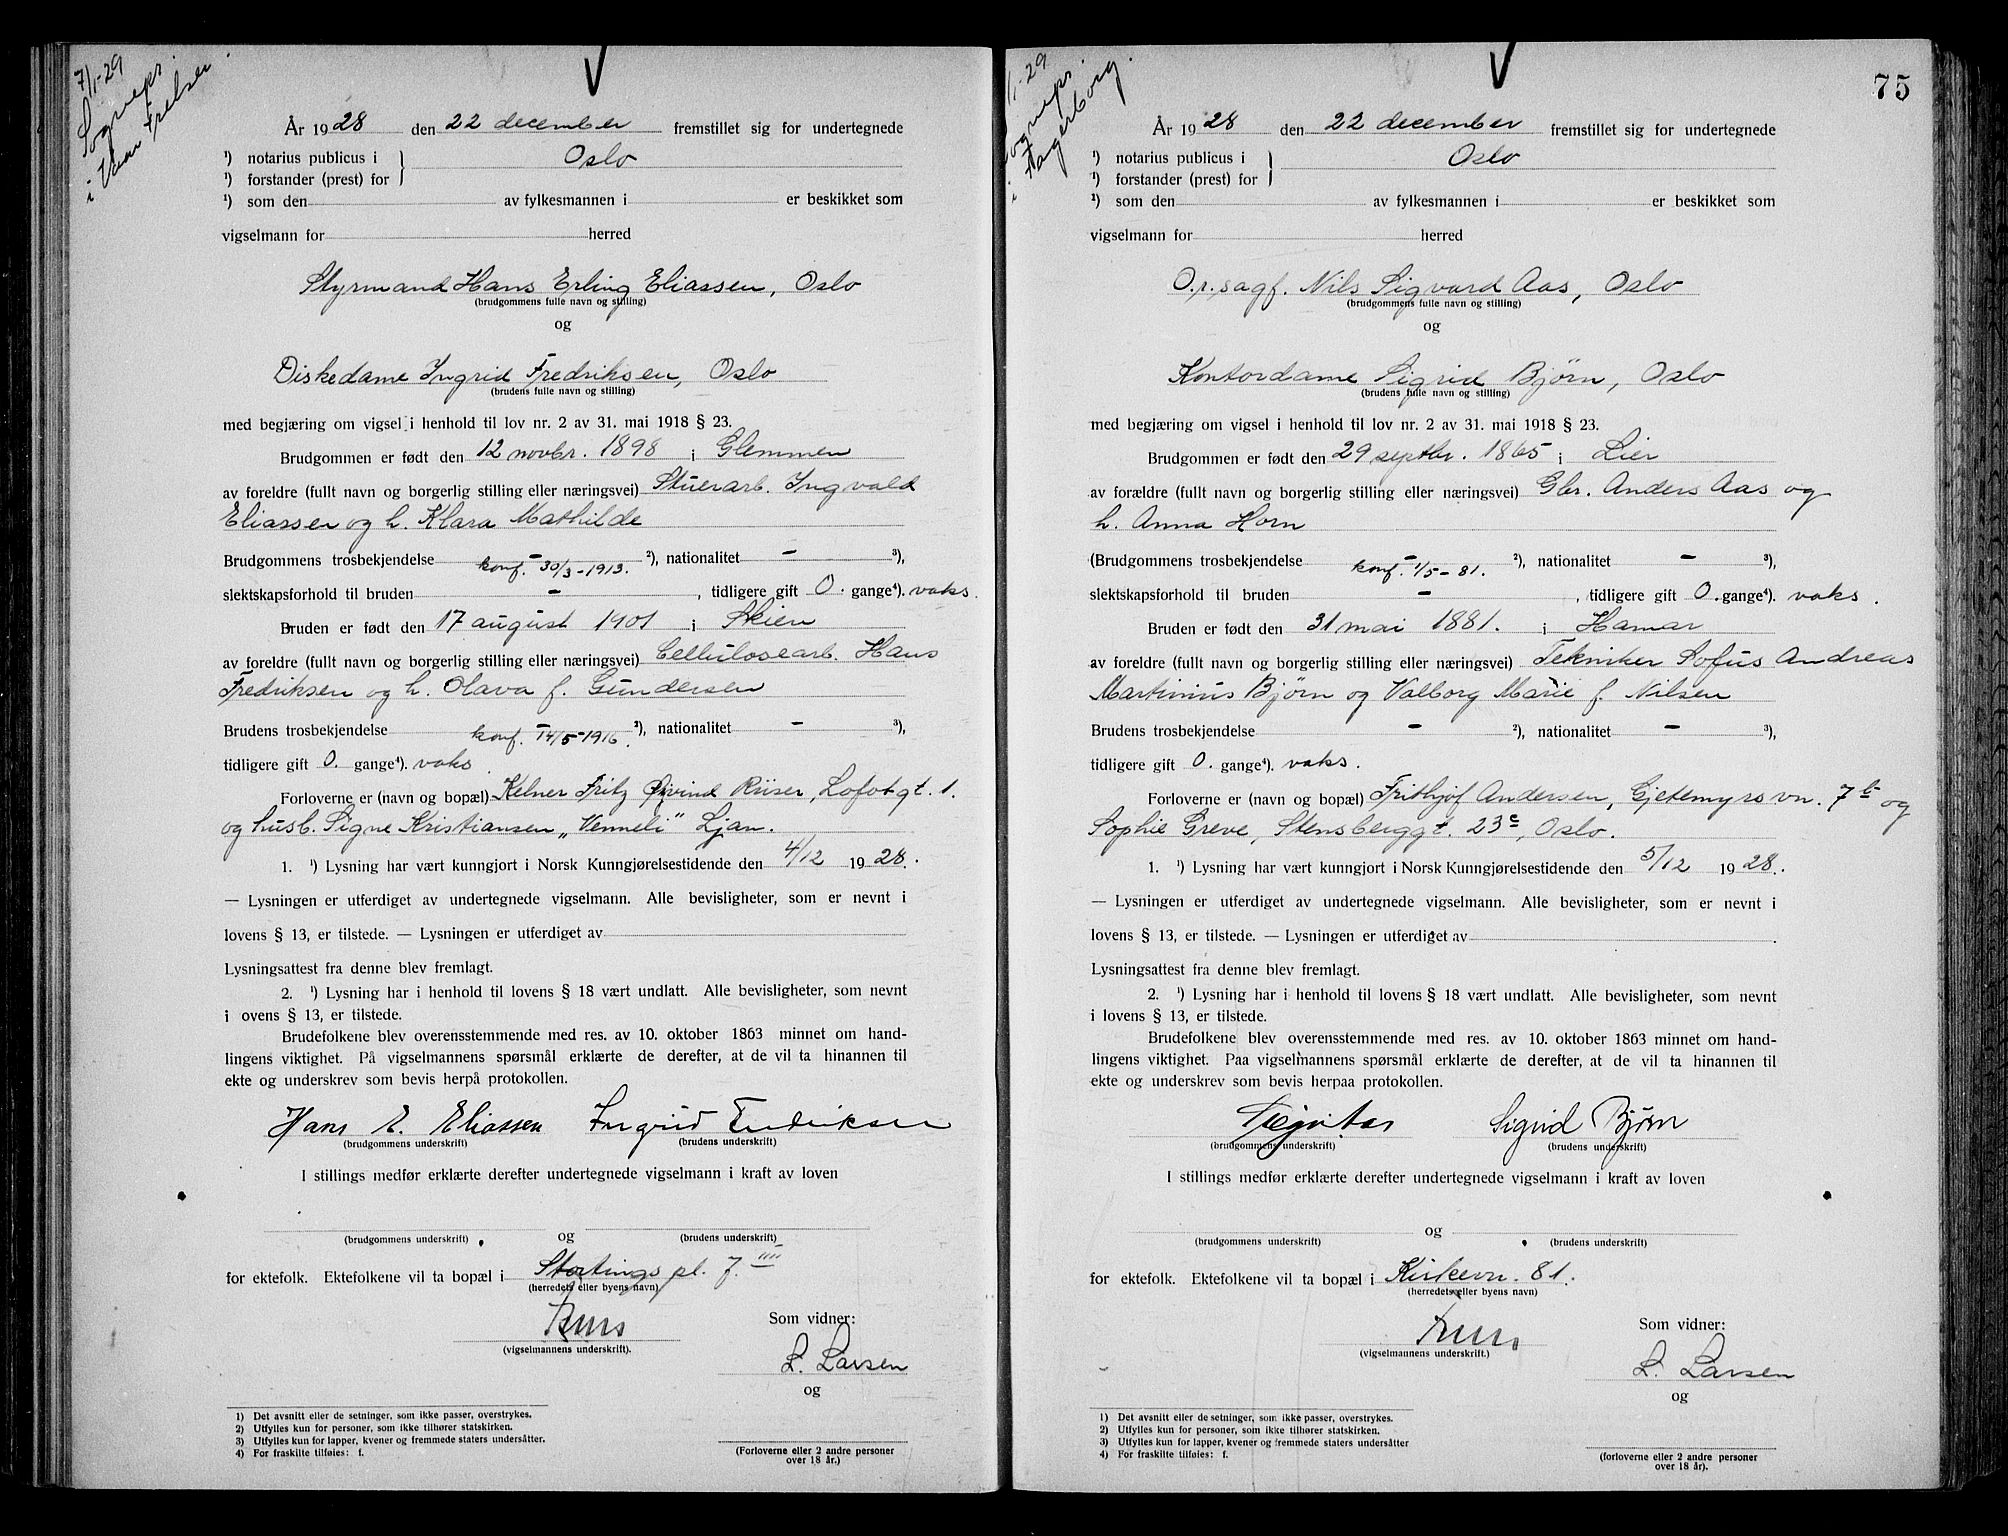 7/1-29
Sogneps.
i Vaar Frelser.
År 1928 den 22 december fremstillet sig for undertegnede
¹) notarius publicus i } Oslo
¹) forstander (prest) for
¹) som den av fylkesmannen i er beskikket som
vigselmann for herred
Styrmand Hans Erling Eliassen, Oslo
(brudgommens fulle navn og stilling)
og
Diskedame Ingrid Fredriksen, Oslo
(brudens fulle navn og stilling)
med begjæring om vigsel i henhold til lov nr. 2 av 31. mai 1918 § 23.
Brudgommen er født den 12 novbr. 1898 i Glemmen
av foreldre (fullt navn og borgerlig stilling eller næringsvei) Stuerarb. Ingvald
Eliassen og h. Klara Mathilde
Brudgommens trosbekjendelse - ²), nationalitet - ³),
konf. 30/3-1913.
slektskapsforhold til bruden - , tidligere gift 0. gange⁴). vaks.
Bruden er født den 17 august 1901 i Skien
av foreldre (fullt navn og borgerlig stilling eller næringsvei) Cellulosearb. Hans
Fredriksen og h. Olava f. Gundersen
Brudens trosbekjendelse - ²), nationalitet - ³),
konf. 14/5-1916.
tidligere gift 0. gange⁴). vaks
Forloverne er (navn og bopæl) Kelner Fritz Øivind Riiser, Lofotgt. 1.
og husb. Signe Kristiansen "Venneli" Ljan.
1. ¹) Lysning har vært kunngjort i Norsk Kunngjørelsestidende den 4/12 1928.
— Lysningen er utferdiget av undertegnede vigselmann. Alle bevisligheter, som er nevnt i
lovens § 13, er tilstede. — Lysningen er utferdiget av
Lysningsattest fra denne blev fremlagt.
2. ¹) Lysning har i henhold til lovens § 18 vært undlatt. Alle bevisligheter, som nevnt
i ovens § 13, er tilstede.
Brudefolkene blev overensstemmende med res. av 10. oktober 1863 minnet om hand-
lingens viktighet. På vigselmannens spørsmål erklærte de derefter, at de vil ta hinannen til
ekte og underskrev som bevis herpå protokollen.
Hans E. Eliassen Ingrid Fredriksen
(brudgommens underskrift) (brudens underskrift)
I stillings medfør erklærte derefter undertegnede vigselmann i kraft av loven
og
(brudgommens underskrift) (brudens underskrift)
for ektefolk. Ektefolkene vil ta bopæl i Stortings pl. 7.
(herredets eller byens navn)
Som vidner:
(vigselmannens underskrift).
L. Larsen
og
1) Det avsnitt eller de setninger, som ikke passer, overstrykes.
2) Utfylles kun for personer, som ikke tilhører statskirken.
3) Utfylles kun for lapper, kvener og fremmede staters undersåtter.
4) For fraskilte tilføies: f.
(Forloverne eller 2 andre personer
over 18 år.)
75
/1-29
ogneps.
i Fagerborg.
År 1928 den 22 december fremstillet sig for undertegnede
¹) notarius publicus i } Oslo
¹) forstander (prest) for
¹) som den av fylkesmannen i er beskikket som
vigselmann for herred
O.r.sagf. Nils Sigvard Aas, Oslo
(brudgommens fulle navn og stilling)
og
Kontordame Sigrid Bjørn, Oslo
(brudens fulle navn og stilling)
med begjæring om vigsel i henhold til lov nr. 2 av 31. mai 1918 § 23.
Brudgommen er født den 29 septbr. 1865 i Lier
av forældre (fullt navn og borgerlig stilling eller næringsvei) Gbr. Anders Aas og
h. Anna Horn
(Brudgommens trosbekjendelse - ²), nationalitet - ³),
konf. 1/5-81.
slektskapsforhold til bruden - , tidligere gift 0. gange⁴). vaks.
Bruden er født den 31 mai 1881. i Hamar
av foreldre (fullt navn og borgerlig stilling eller næringsvei) Tekniker Sofus Andreas
Martinius Bjørn og Valborg Marie f. Nilsen
Brudens trosbekjendelse - ²), nationalitet - ³),
tidligere gift 0. gange⁴). vaks.
Forloverne er (navn og bopæl) Frithjof Andersen, Gjetemyrsvn. 7b og
Sophie Greve, Stensberggt. 23c, Oslo.
1. ¹) Lysning har vært kunngjort i Norsk Kunngjørelsestidende den 5/12 1928.
— Lysningen er utferdiget av undertegnede vigselmann. Alle bevisligheter, som er nevnt i
lovens § 13, er tilstede. — Lysningen er utferdiget av
Lysningsattest fra denne blev fremlagt.
2. ¹) Lysning har i henhold til lovens § 18 vært undlatt. Alle bevisligheter, som nevnt
i lovens § 13, er tilstede.
Brudefolkene blev overensstemmende med res. av 10. oktober 1863 minnet om hand-
lingens viktighet. Paa vigselmannens spørsmål erklærte de derefter, at de vil ta hinannen til
ekte og underskrev som bevis herpaa protokollen.
Sigrid Bjørn
(brudgommens underskrift) (brudens underskrift)
I stillings medfør erklærte derefter undertegnede vigselmann i kraft av loven
og
(brudgommens underskrift) (brudens underskrift)
for ektefolk. Ektefolkene vil ta bopæl i Kirkevn. 81.
(herredets eller byens navn)
Som vidner:
(vigselmannens underskrift.)
L. Larsen
og
1) Det avsnitt eller de setninger, som ikke passer, overstrykes.
2) Utfylles kun for personer, som ikke tilhører statskirken.
3) Utfylles kun for lapper, kvener og fremmede staters undersåtter
4) For fraskilte tilføies: f.
(forloverne eller 2 andre personer
over 18 år).